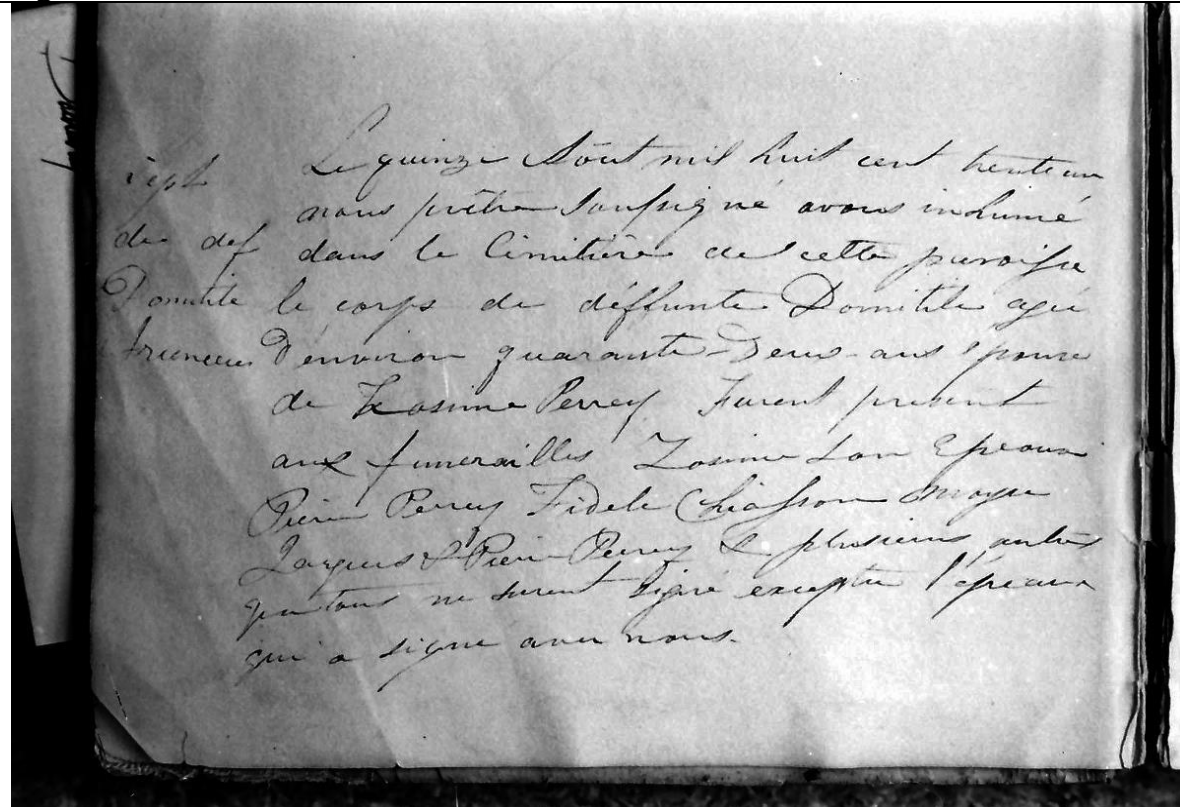 Sept
de def
Domitile
Le quinze Août mil huit cent trente un
nous prêtre soussigné avons inhumé
dans le Cimitière de cette paroisse
le corps de déffunte Domitile agée
D'environ quarante-Deux ans épouse
de Zosime Perrey Furent present
aux funerailles Zosime son Epeoux
Pierre Perrey Fidele Chiasson Moyse
Jacques & Pierre Perrey & plusieurs autres
que tous ne surent signé excepter l'épeoux
qui a signe avec nous.